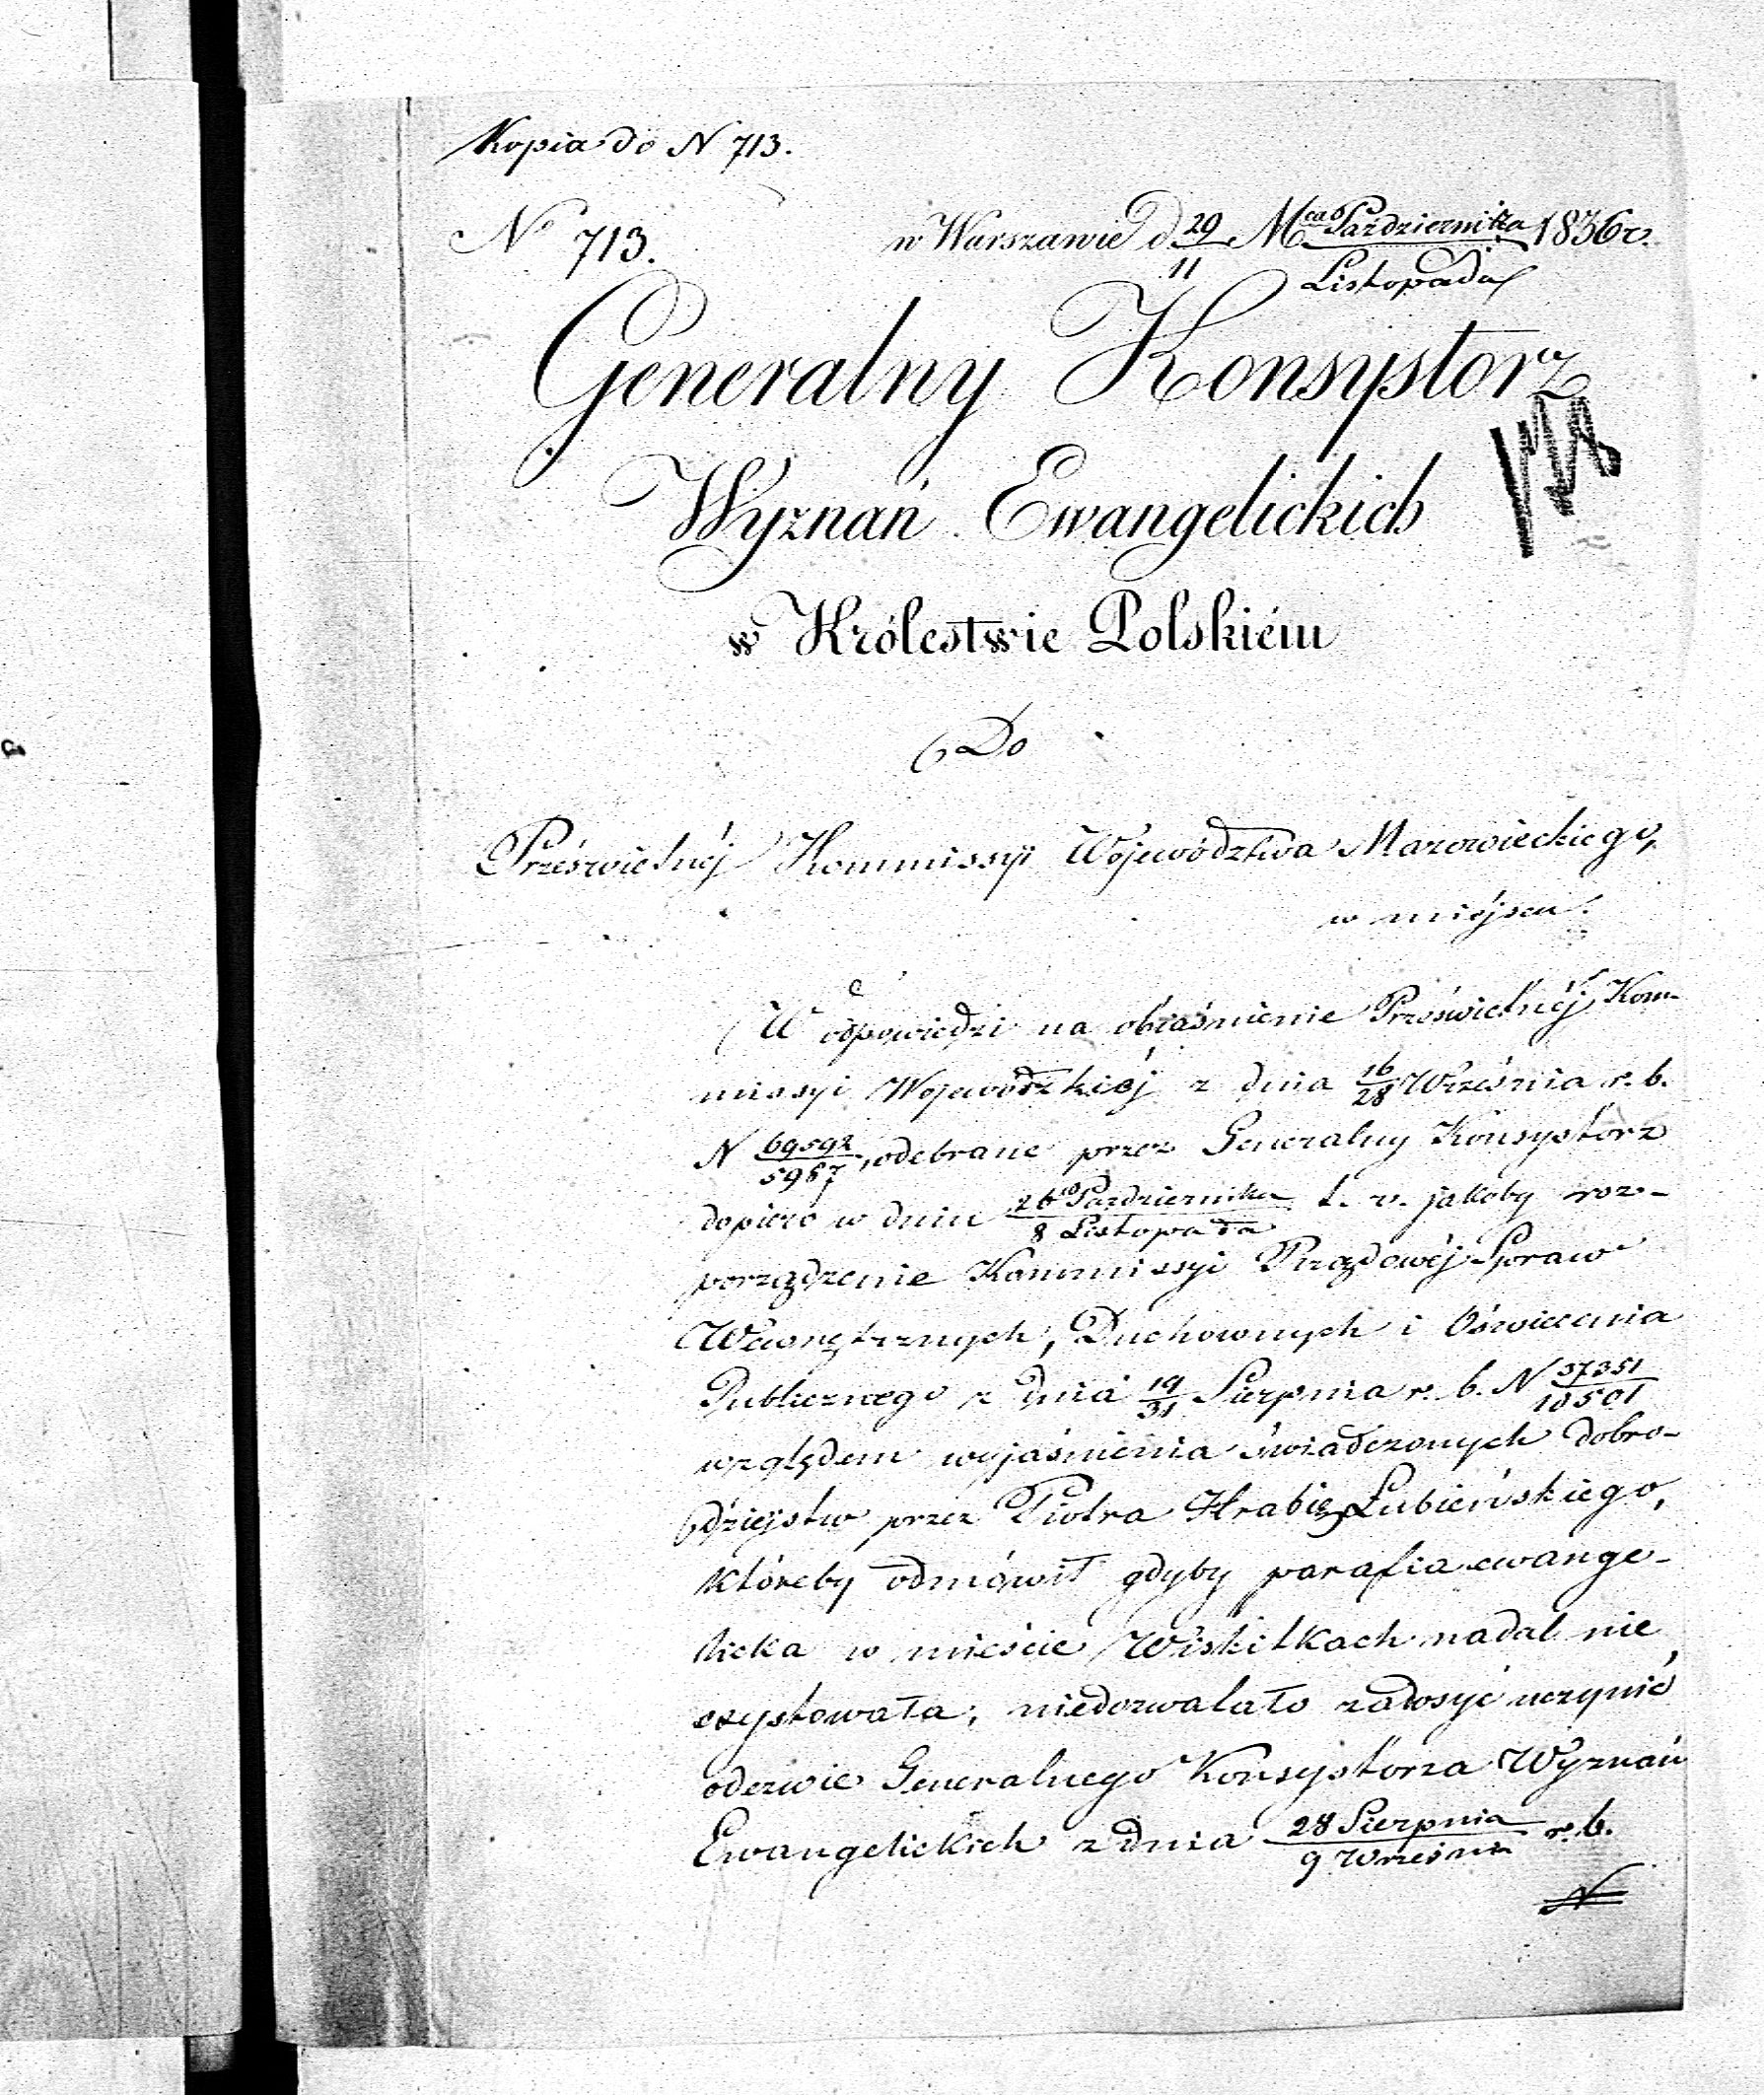 Kopia do N 713.
No 713.
w Warszawie d 29/11 Mca Października/Listopada 1836 r.
Generalny Konsystorz
Wyznań Ewangelickich
w Królestwie Polskiém
Do
Prześwietnéj Kommissyi Województwa Mazowieckiego,
w miéjscu.
W odpowiedzi na obiaśnienie Prześwietnéj Kom-
missyi Wojewódzkiéj z dnia 16/28 Września r. b.
N 69592/5987, odebrane przez Generalny Konsystorz
dopiero w dniu 26 Października/8 Listopada t. r. jakoby roz-
porządzenie Kommissyi Rządowéj Spraw
Wewnętrznych, Duchownych i Oświecenia
Publicznego z dnia 19/31 Sierpnia r. b. N 37351/10501
względem wyjaśnienia świadczonych dobro-
dziejstw przez Piotra Hrabię Łubieńskiego,
któreby odmówił gdyby parafia ewange-
licka w mieście Wiskitkach nadal nie
exystowała, niedozwalało zadosyć uczynić
odezwie Generalnego Konsystorza Wyznań
Ewangelickich z dnia 28 Sierpnia/9 Września r. b.
N